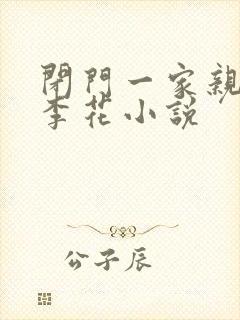 閉門一家親
李花小説
公子辰